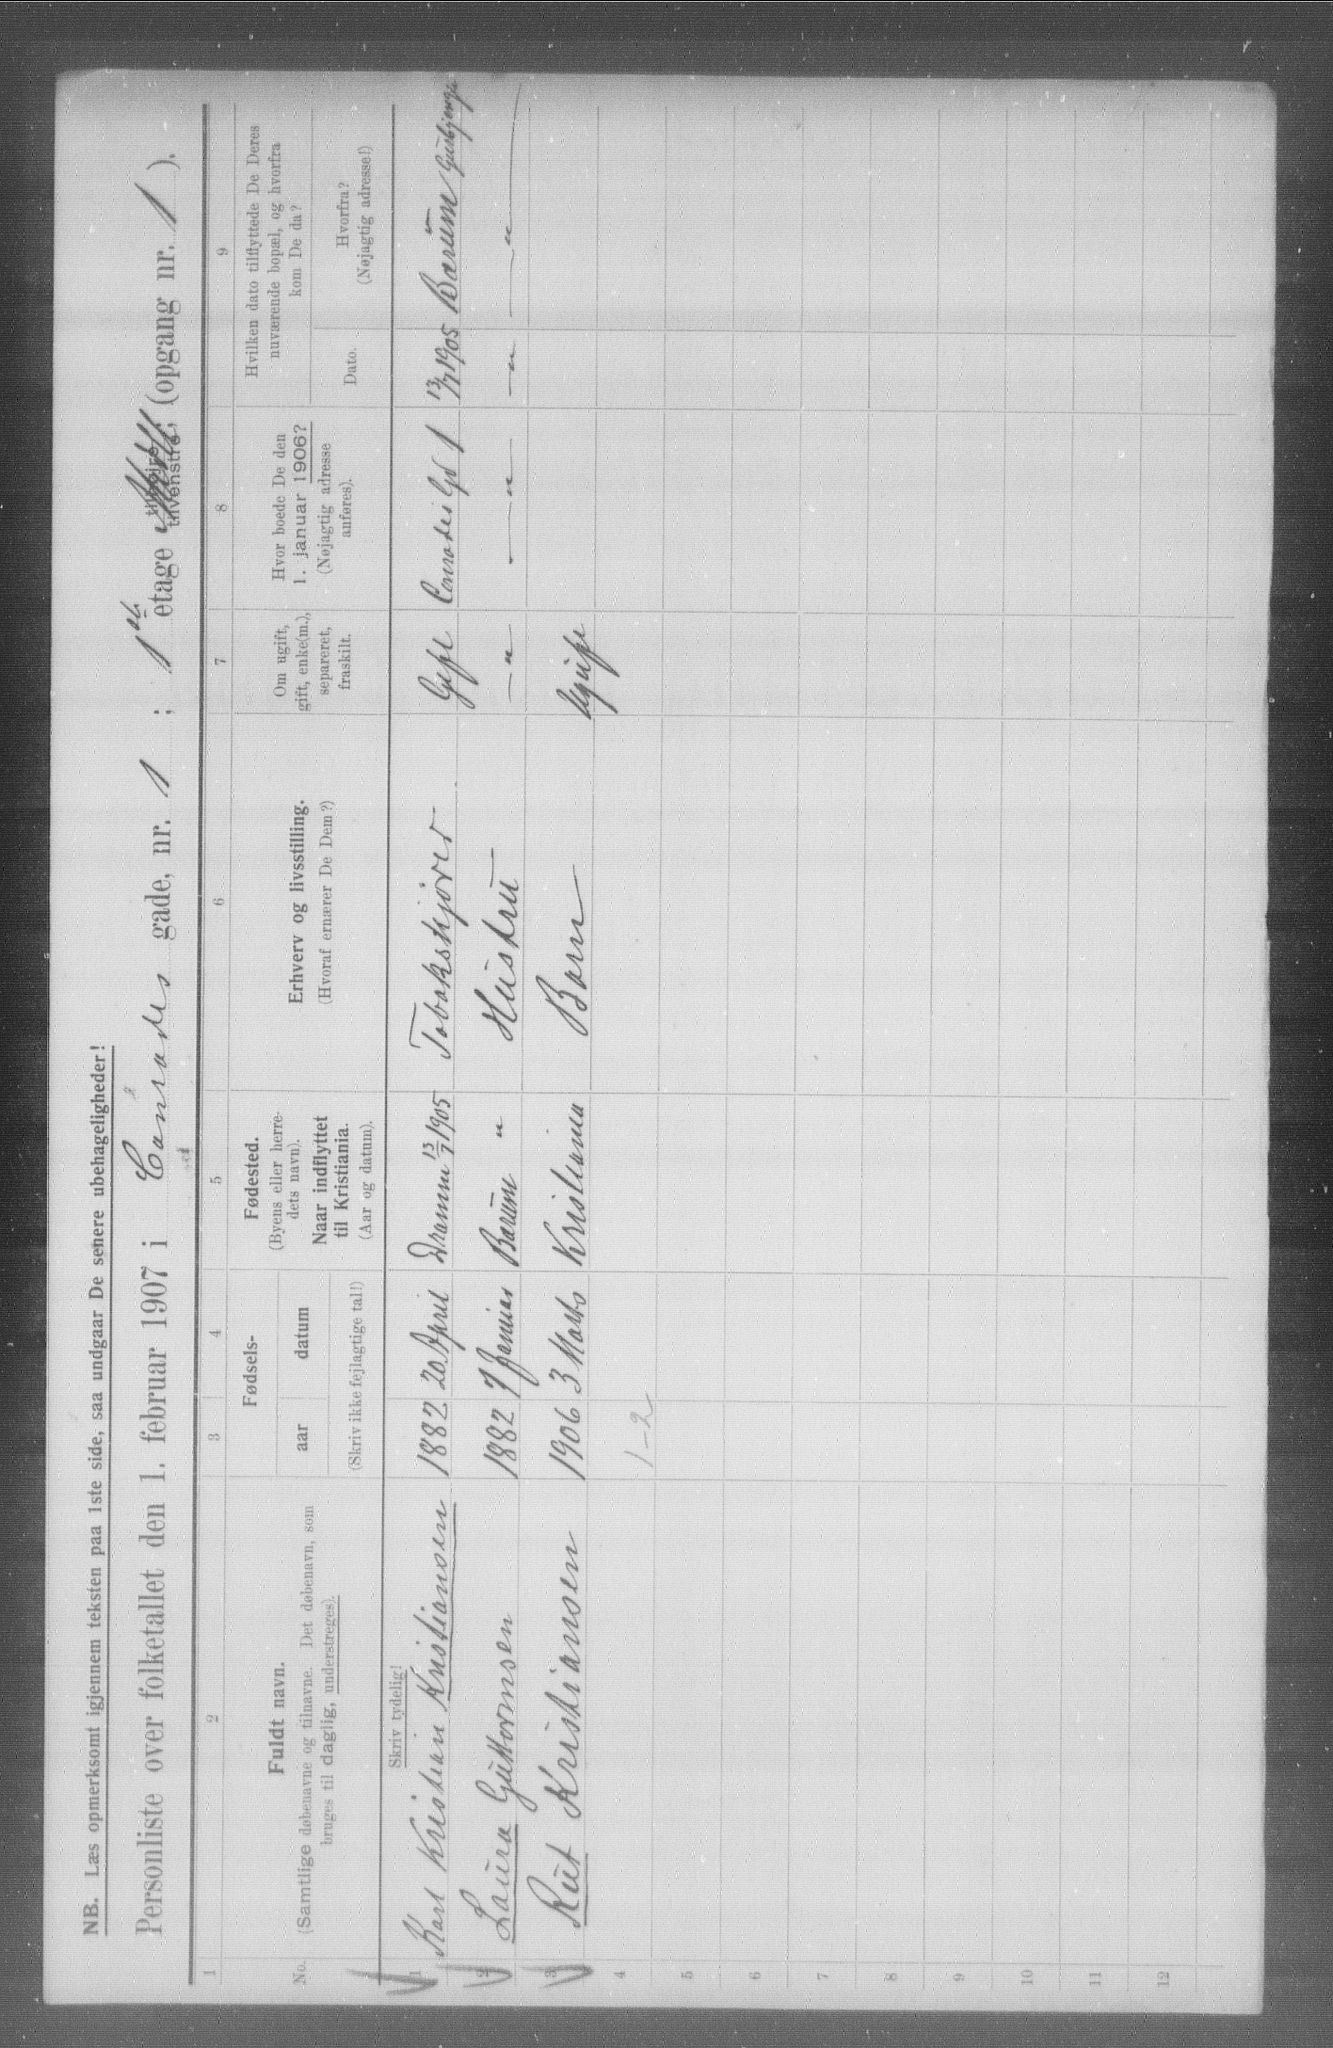 NB. Læs opmerksomt igjennem teksten paa 1ste side, saa undgaar De senere ubehageligheder!
Personliste over folketallet den 1. februar 1907 i Conrades gade, nr. 1 ; 1ste etage tilvenstre, (opgang nr. 1 ).
1 2 3 4 5 6 7 8 9
No.
Fuldt navn.
(Samtlige døbenavne og tilnavne. Det døbenavn, som
bruges til daglig, understreges).
Fødsels-
aar datum
(Skriv ikke fejlagtige tal!)
Fødested.
(Byens eller herre-
dets navn).
Naar indflyttet
til Kristiania.
(Aar og datum).
Erhverv og livsstilling.
(Hvoraf ernærer De Dem?)
Om ugift,
gift, enke(m.),
separeret,
fraskilt.
Hvor boede De den
1. januar 1906?
(Nøjagtig adresse
anføres).
Hvilken dato tilflyttede De Deres
nuværende bopæl, og hvorfra
kom De da?
Dato.
Hvorfra?
(Nøjagtig adresse!)
Skriv tydelig!
1 Karl Kristian Kristiansen 1882 20 April Dramm 13/7 1905 Tobakskjører Gift Conradesgd 1 13/7 1905 Bærum
2 Laura Guttormsen 1882 7 Januar Bærum " Hustru — " — - — " — — " — — " —
3 Rut Kristiansen 1906 3 Marts Kristiania Barn Ugift
4 1-2
5
6
7
8
9
10
11
12